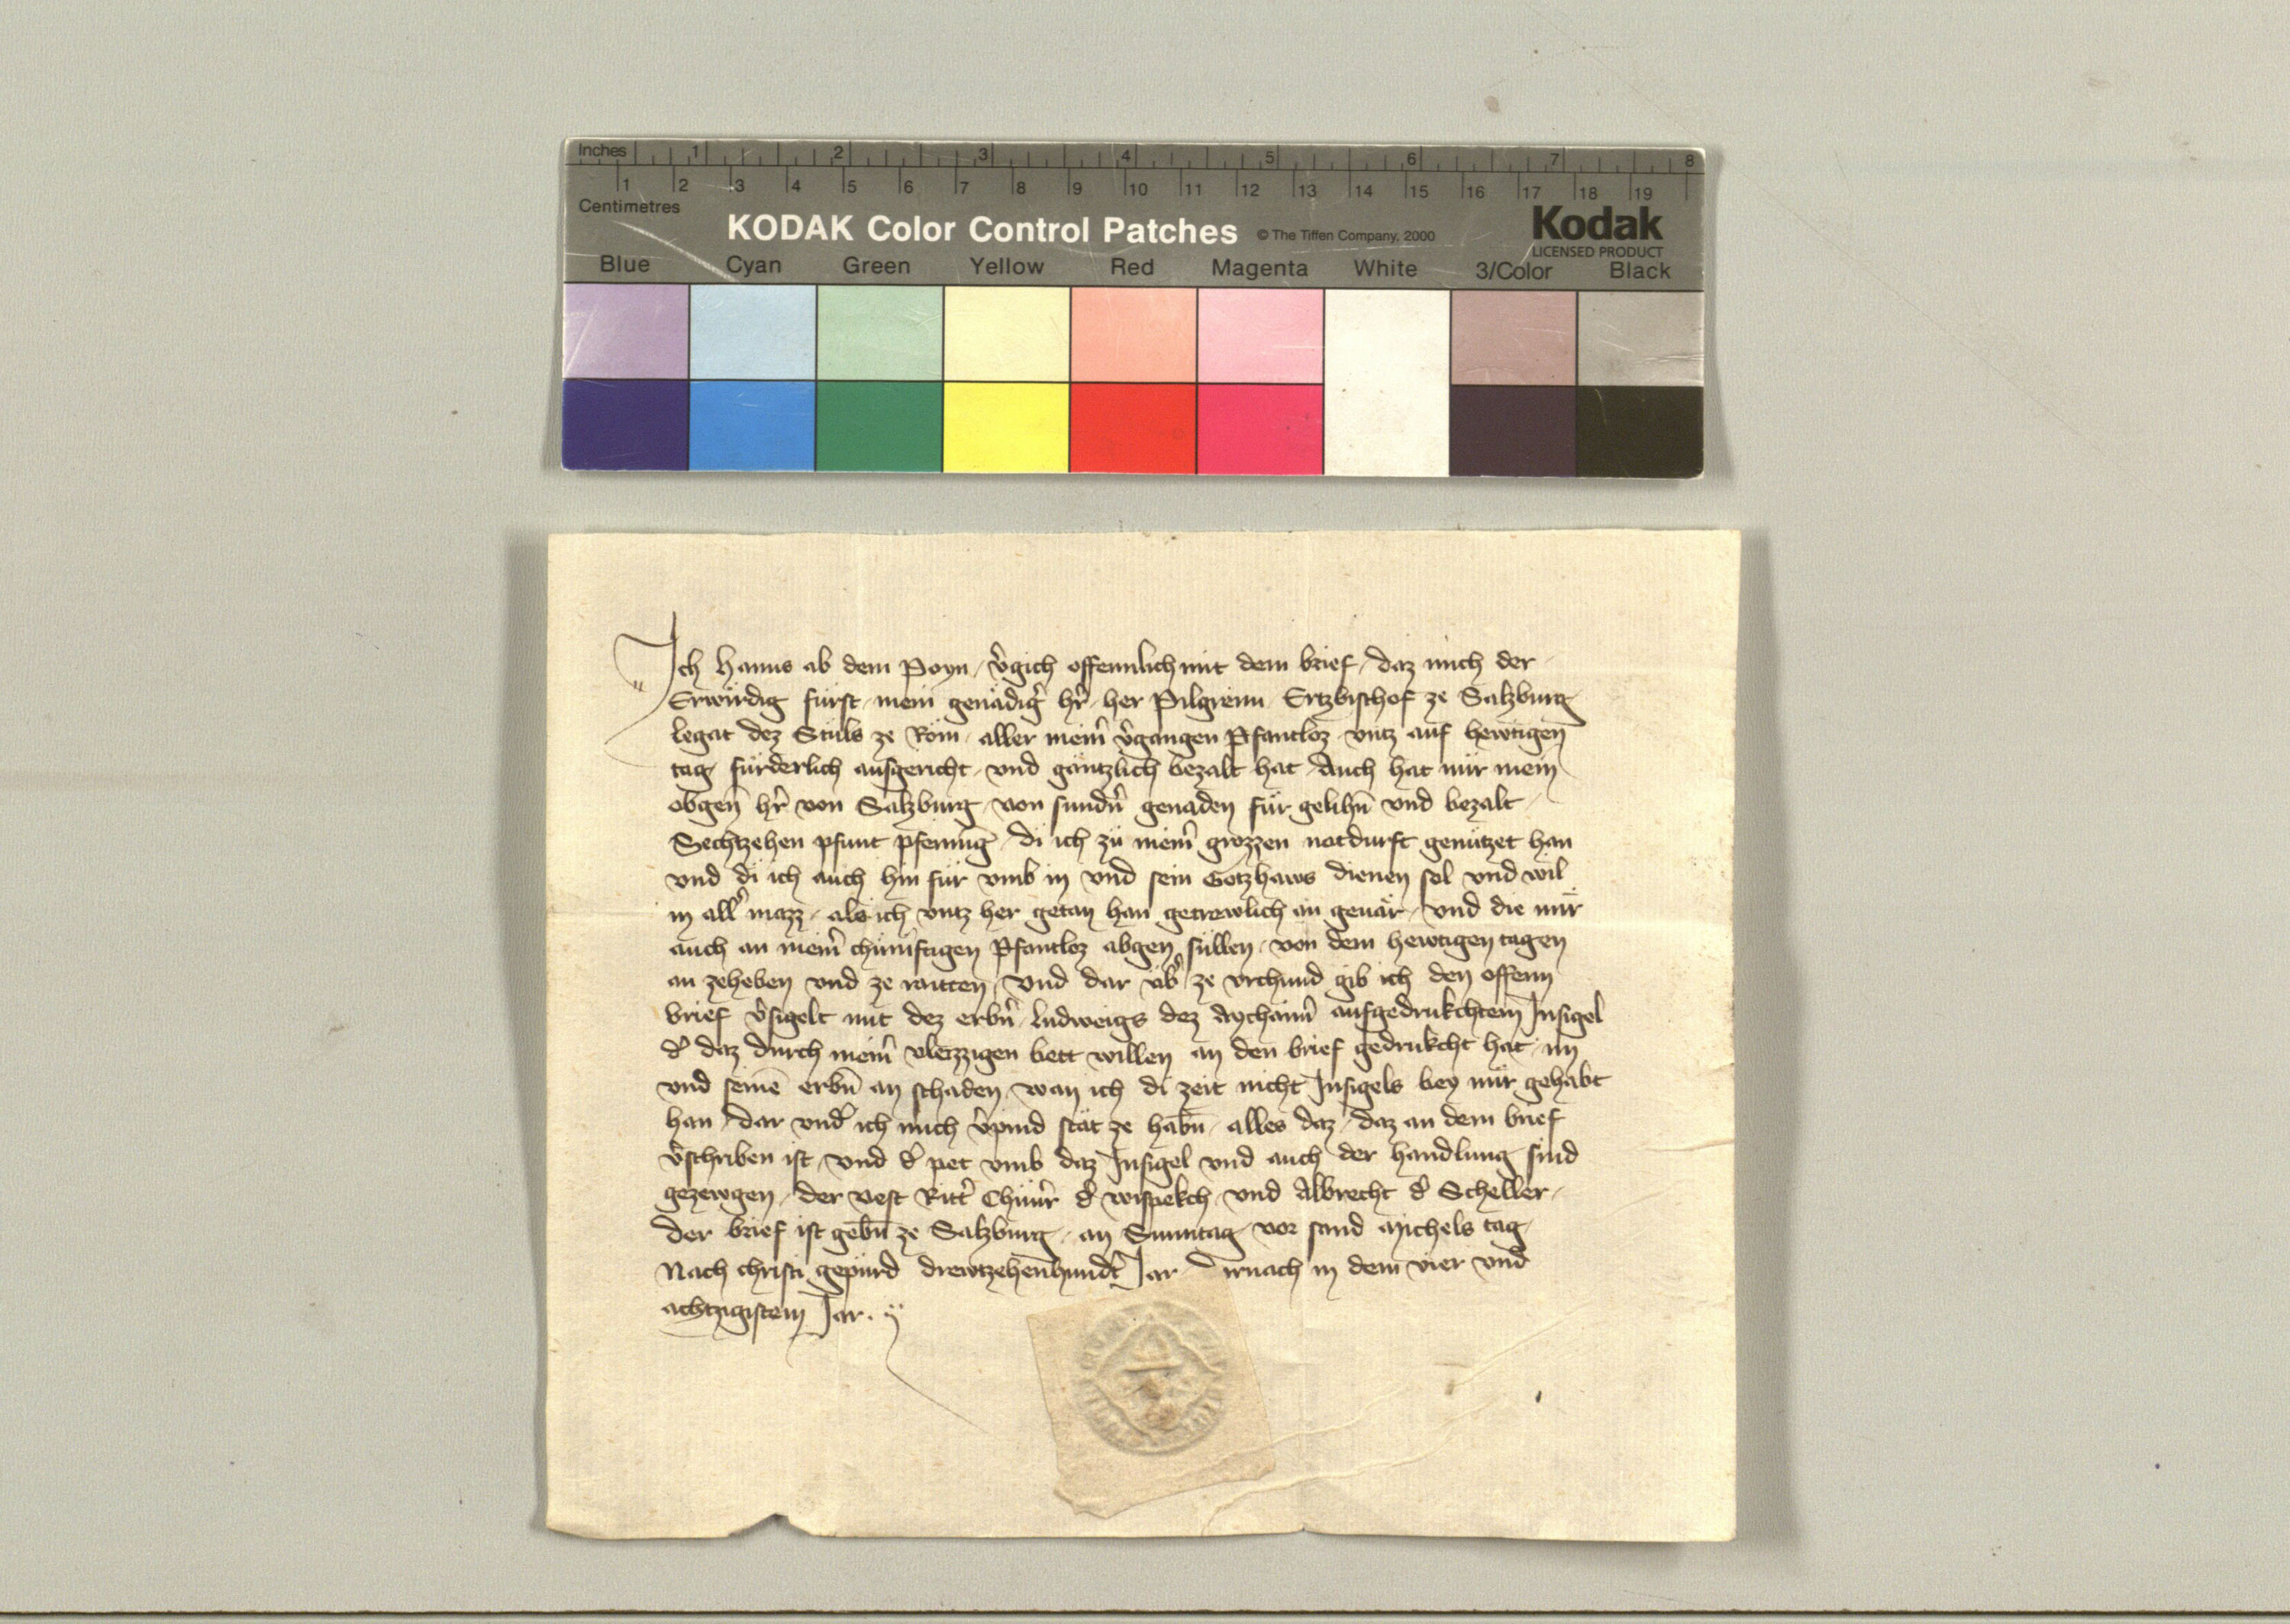 Inches 1 2 3 4 5 6 7 8
1 2 3 4 5 6 7 8 9 10 11 12 13 14 15 16 17 18 19
Centimetres
KODAK Color Control Patches © The Tiffen Company, 2000 Kodak
LICENSED PRODUCT
Blue Cyan Green Yellow Red Magenta White 3/Color Black
Ich Hanns ab dem Poyn v̂gich offennlich mit dem brief daz mich der
Erwirdig fürst mein genädig̑ hr̂ her Pilgreim Ertzbischof ze Salzburg
legat dez Stuls ze Rom aller meinr̂ v̂gangen Pfantloz vntz auf hewtigen
tag fürderlich ausgericht und gäntzlich bezalt hat Auch hat mir mein
obgen̄ hr̂ von Salzburg von sundn̂ genaden für gelihn̄ und bezalt
Sechtzehen pfunt pfenning di ich zü meinr̂ grozzen notdurft genützet han
und di ich auch hin für umb in und sein Gotzhaws dienen sol und wil
in all̂ mazz als ich vntz her getan han getrewlich an geuär und die mir
auch an meinr̂ chünftigen Pfantloz abgen süllen von dem hewtigen tagen
an zeheben und ze raitten Und dar üb̂ ze vrchund gib ich den offenn
brief v̂sigelt mit dez erbn̂ Ludweigs dez Aychaimr̂ aufgedrukchtem Insigel
d̂ daz durch meinr̂ vleizzigen bett willen an den brief gedrukcht hat im
und seinē erbn̄ an schaden wan ich di zeit nicht Insigels bey mir gehabt
han dar und̂ ich mich v̂pind stät ze habn̄ alles daz daz an dem brief
v̂schriben ist Und d̂ pet umb daz Insigel und auch der handlung sind
gezewgen der vest Ritt̂ Chunr̂ d̂ wispekch und Albrecht d̂ Scheller
Der brief ist gebn̄ ze Salzburg an Sunntag vor sand Michels tag
Nach christi gepürd drewtzehenhundt̂ Jar Dirnach in dem vier und
achtzigistem Jar.